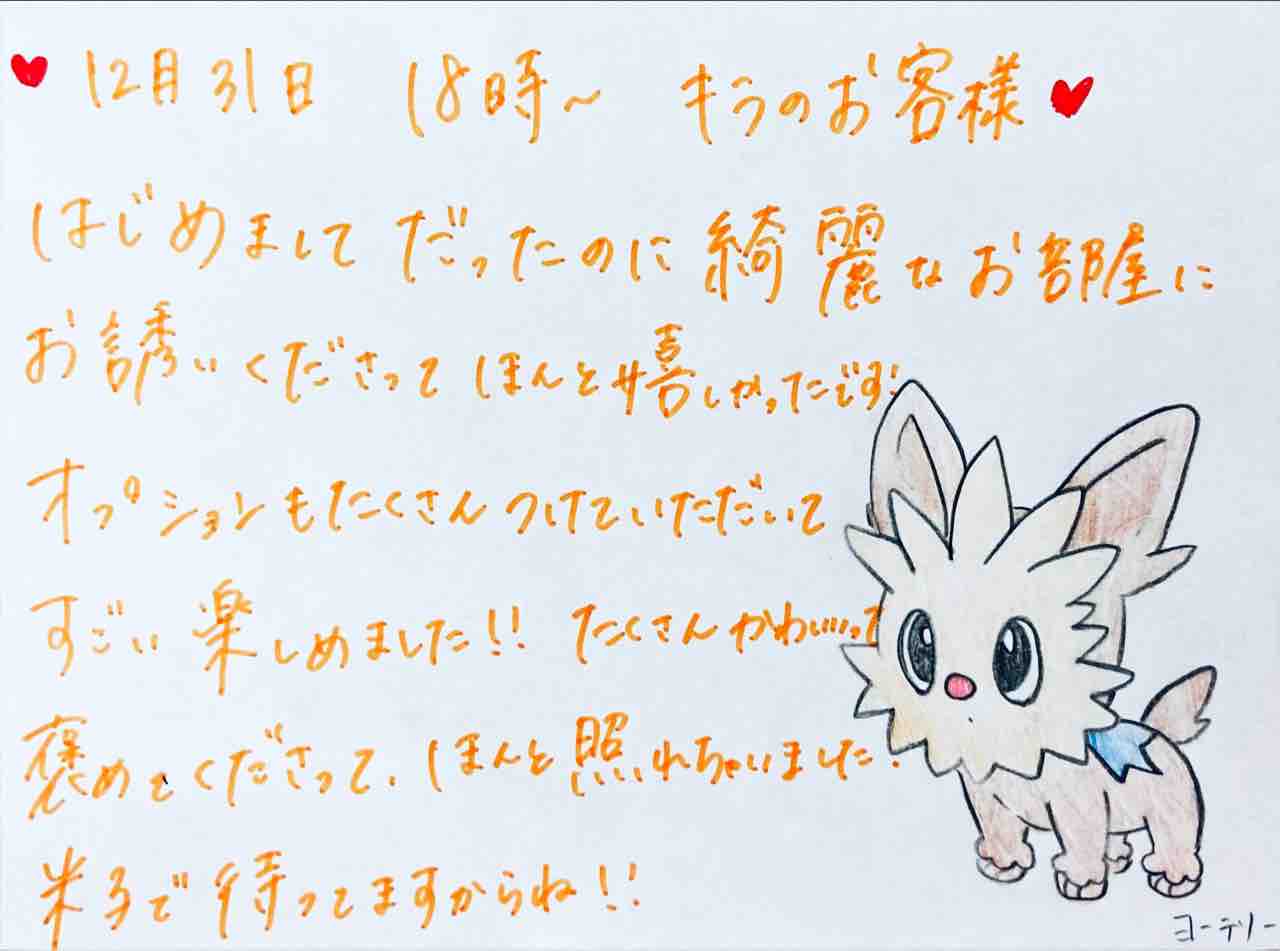 ♥ 12月31日 18時~ キラのお客様 ♥
はじめまして だったのに 綺麗なお部屋に
お誘いくださって ほんと嬉しかったです!
オプションもたくさん つけていただいて
すごい楽しめました!! たくさん かわいいって
褒めてくださって、ほんと照れちゃいました!
米子で待ってますからね!!
ヨーテリー